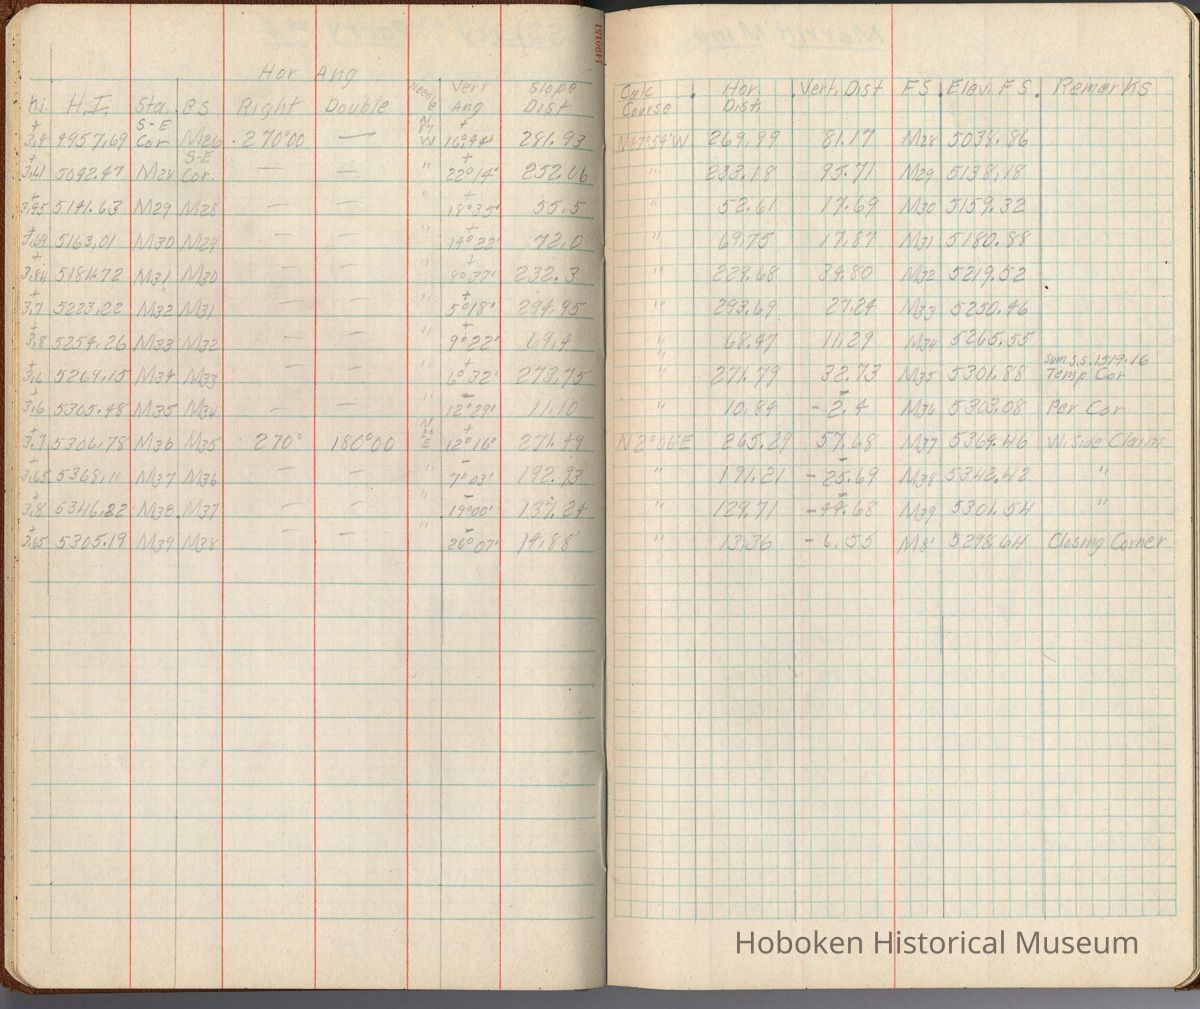 Hor Ang
hi H.I. Sta. BS Right Double Needle Vert Ang Slope Dist
Calc Course Hor. Dist. Vert. Dist FS Elev. F.S. Remarks
+ 3.4 4957.69 S-E Cor M26 270°00 — N 87 W + 16°44' 281.93
N 87°54'W 269.99 81.17 M28 5038.86
+ 3.61 5042.47 M28 S-E Cor. — — " + 22°14' 252.06
" 233.18 95.71 M29 5138.18
5141.63 M29 M28 — — " + 18°35' 55.5
" 52.61 17.69 M30 5159.32
5163.01 M30 M29 — — " + 14°22' 72.0
" 69.75 17.87 M31 5180.88
+ 3.84 5184.72 M31 M30 — — " + 232.3
" 34.80 M32 5219.52
+ 3.7 5223.22 M32 M31 — — " + 5°18' 294.95
" 293.69 27.24 M33 5250.46
+ 3.8 5254.26 M33 M32 — — " + 9°22' 69.4
" 68.47 11.29 M34 5265.55
+ 3.6 5269.15 M34 M33 — — " + 6°32' 273.75
" 271.79 32.73 M35 5301.88 sum S.S. 1519.16 Temp Cor
+ 3.6 5305.48 M35 M34 — — " - 12°29' 11.10
" 10.84 - 2.4 M36 5303.08 Per Cor
+ 3.7 5306.78 M36 M35 270° 180°00 N 20 E + 12°16' 271.49
N 2°06'E 265.29 57.68 M37 5364.46 W. Side Claim
+ 3.65 5368.11 M37 M36 — — " - 7°03' 192.93
" 191.21 - 25.69 M38 5342.42 "
+ 3.8 5346.22 M38 M37 — — " - 19°00' 137.24
" 129.71 - 44.68 M39 5301.54 "
+ 3.65 5305.19 M39 M38 — — " - 26°07' 14.88
" 13.36 - 6.55 5298.64 Closing Corner
Hoboken Historical Museum